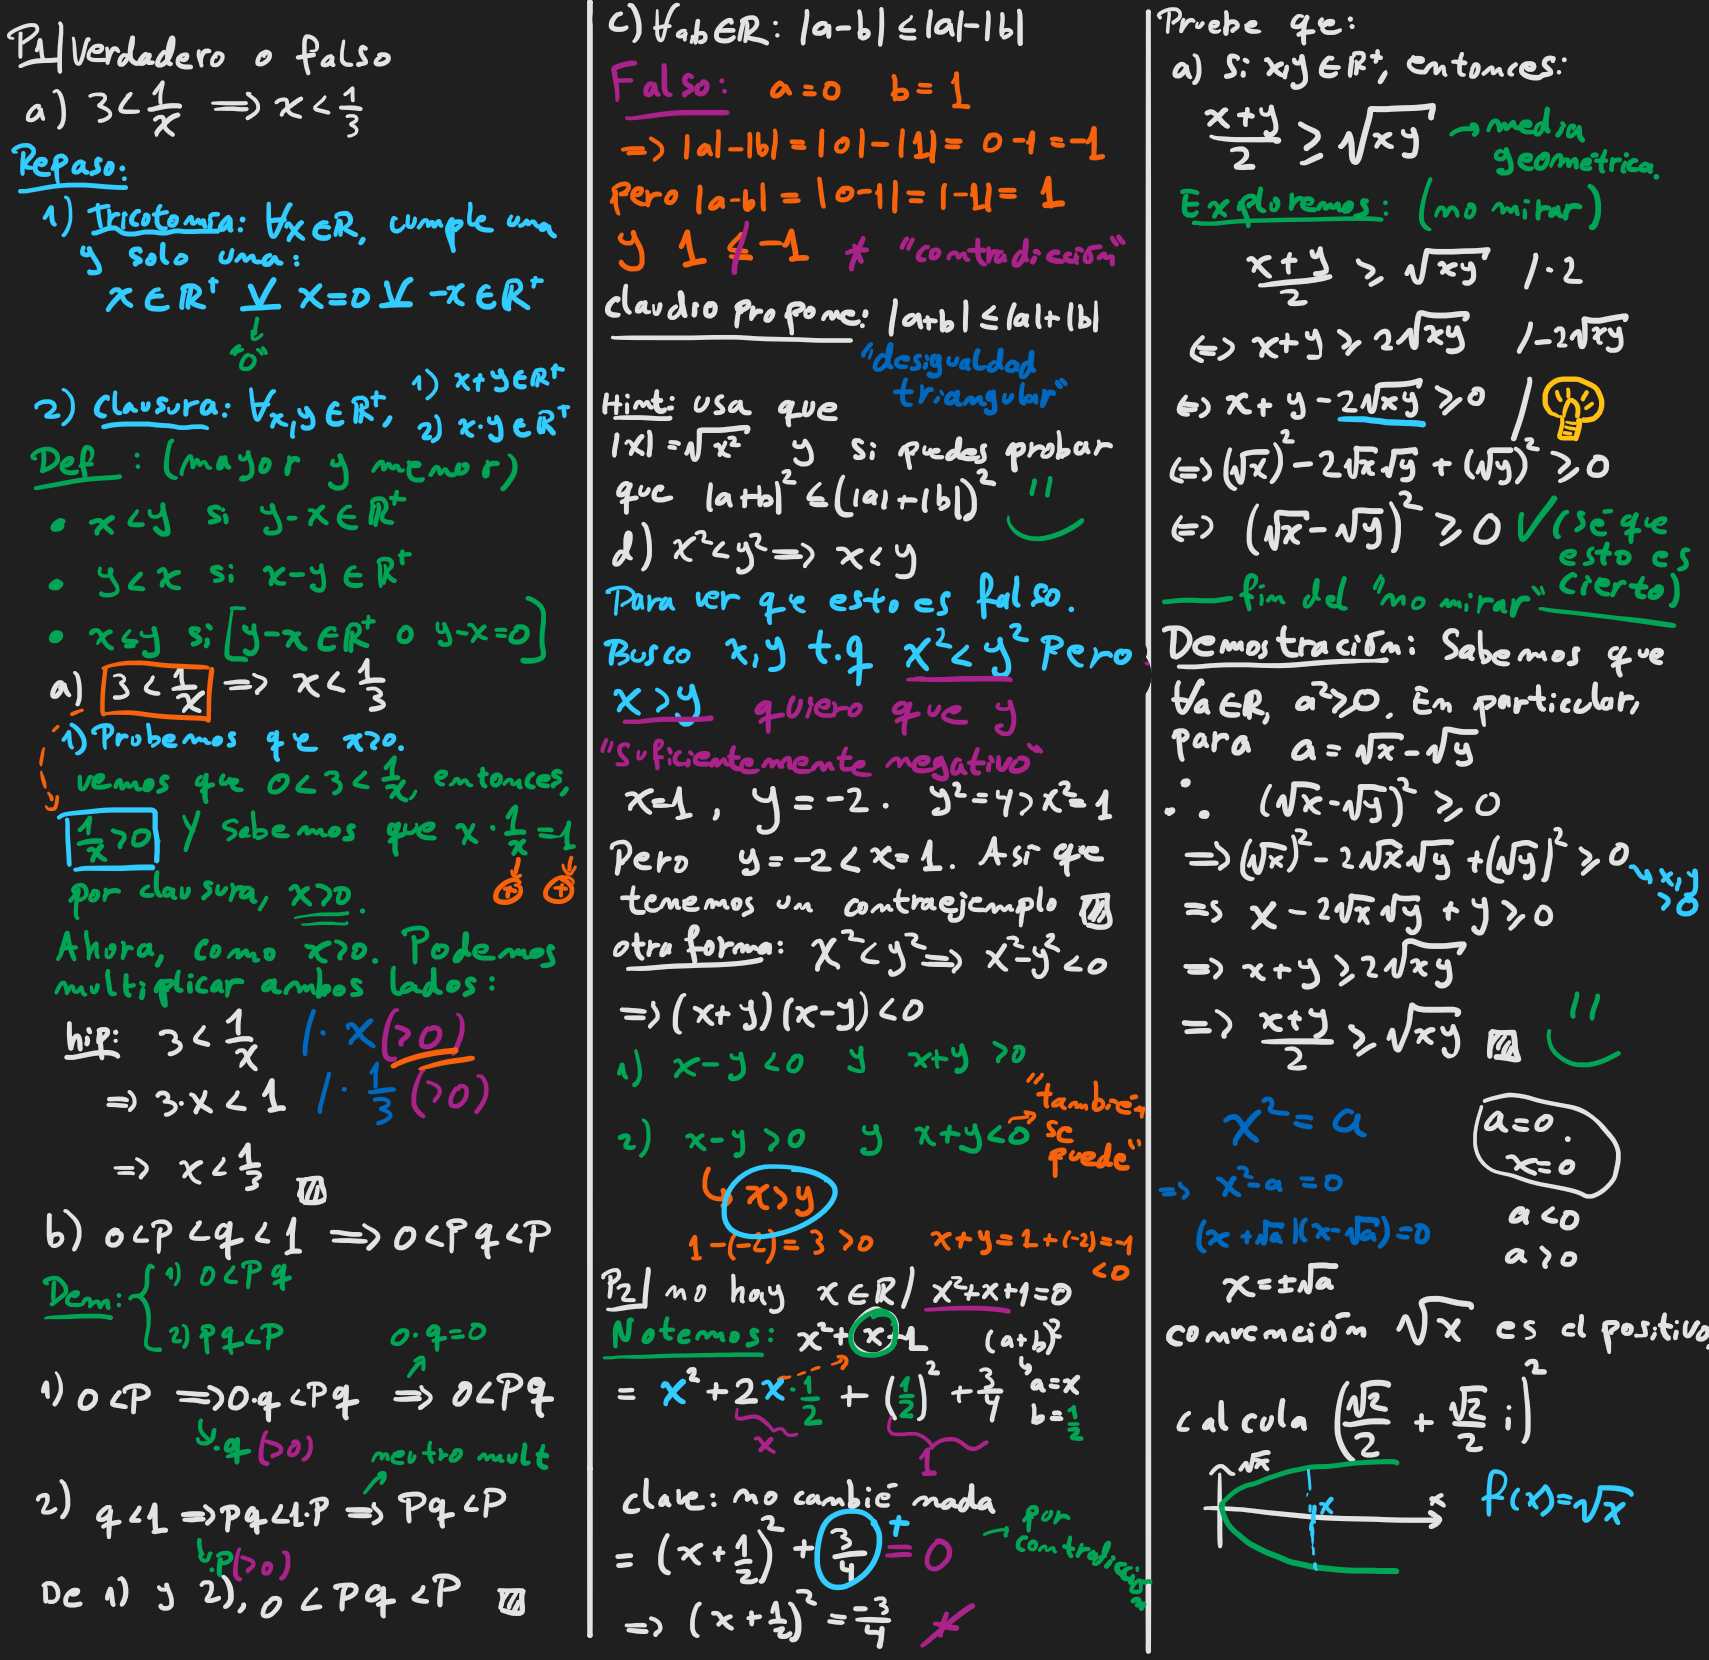 P1| Verdadero o falso
a) 3 < 1/x ⟹ x < 1/3
Repaso:
1) Tricotomía: ∀x∈ℝ, cumple una
y solo una:
x∈ℝ⁺ ⊻ x=0 ⊻ -x∈ℝ⁺
"o"
2) Clausura: ∀x,y∈ℝ⁺, 1) x+y∈ℝ⁺
2) x·y∈ℝ⁺
Def: (mayor y menor)
• x<y si y-x∈ℝ⁺
• y<x si x-y∈ℝ⁺
• x≤y si [y-x∈ℝ⁺ o y-x=0]
a) 3 < 1/x ⟹ x < 1/3
1) Probemos que x>0.
vemos que 0<3<1/x, entonces,
1/x>0 y sabemos que x·1/x=1
+ +
por clausura, x>0.
Ahora, como x>0. Podemos
multiplicar ambos lados:
hip: 3 < 1/x /·x(>0)
⟹ 3·x < 1 /·1/3 (>0)
⟹ x < 1/3
b) 0<p<q<1 ⟹ 0<pq<p
Dem: { 1) 0<pq
2) pq<p
0·q=0
1) 0<p ⟹ 0·q<pq ⟹ 0<pq
·q (>0)
neutro mult
2) q<1 ⟹ pq<1·p ⟹ pq<p
·p(>0)
De 1) y 2), 0<pq<p
c) ∀a,b∈ℝ: |a-b| ≤ |a|-|b|
Falso: a=0 b=1
⟹ |a|-|b| = |0|-|1| = 0-1 = -1
pero |a-b| = |0-1| = |-1| = 1
y 1 ≰ -1 * "contradicción"
claudio propone: |a+b| ≤ |a|+|b|
"desigualdad
triangular"
Hint: usa que
|x| = √x² y si puedes probar
que |a+b|² ≤ (|a|+|b|)²
d) x²<y² ⟹ x<y
Para ver que esto es falso.
Busco x,y t.q x²<y² Pero
x>y quiero que y
"suficientemente negativo"
x=1, y=-2. y²=4>x²=1
Pero y=-2<x=1. Asi que
tenemos un contraejemplo
otra forma: x²<y² ⟹ x²-y²<0
⟹ (x+y)(x-y)<0
1) x-y<0 y x+y>0
2) x-y>0 y x+y<0
"también
se
puede"
x>y
1-(-2)=3>0 x+y=1+(-2)=-1
<0
P2| no hay x∈ℝ / x²+x+1=0
Notemos: x²+x+1 (a+b)²
= x²+2x·1/2+(1/2)²+3/4
a=x
b=1/2
x 1
clave: no cambié nada
= (x+1/2)²+3/4 = 0
+
por
contradicción
⟹ (x+1/2)² = -3/4
Pruebe que:
a) si x,y∈ℝ⁺, entonces:
(x+y)/2 ≥ √xy → media
geométrica.
Exploremos: (no mirar)
(x+y)/2 ≥ √xy /·2
⟺ x+y ≥ 2√xy /-2√xy
⟺ x+y-2√xy ≥ 0 /
⟺ (√x)²-2√x√y+(√y)² ≥ 0
⟺ (√x-√y)² ≥ 0 ✓ (sé que
esto es
cierto)
fin del "no mirar"
Demostración: Sabemos que
∀a∈ℝ, a²≥0. En particular,
para a=√x-√y
∴ (√x-√y)² ≥ 0
⟹ (√x)²-2√x√y+(√y)² ≥ 0
x,y
>0
⟹ x-2√x√y+y ≥ 0
⟹ x+y ≥ 2√xy
⟹ (x+y)/2 ≥ √xy
x²=a
a=0.
x=0
⟹ x²-a=0
(x+√a)(x-√a)=0
a<0
a>0
x=±√a
convención √x es el positivo
calcula (√2/2 + √2/2 i)²
√x
x
x
f(x)=√x